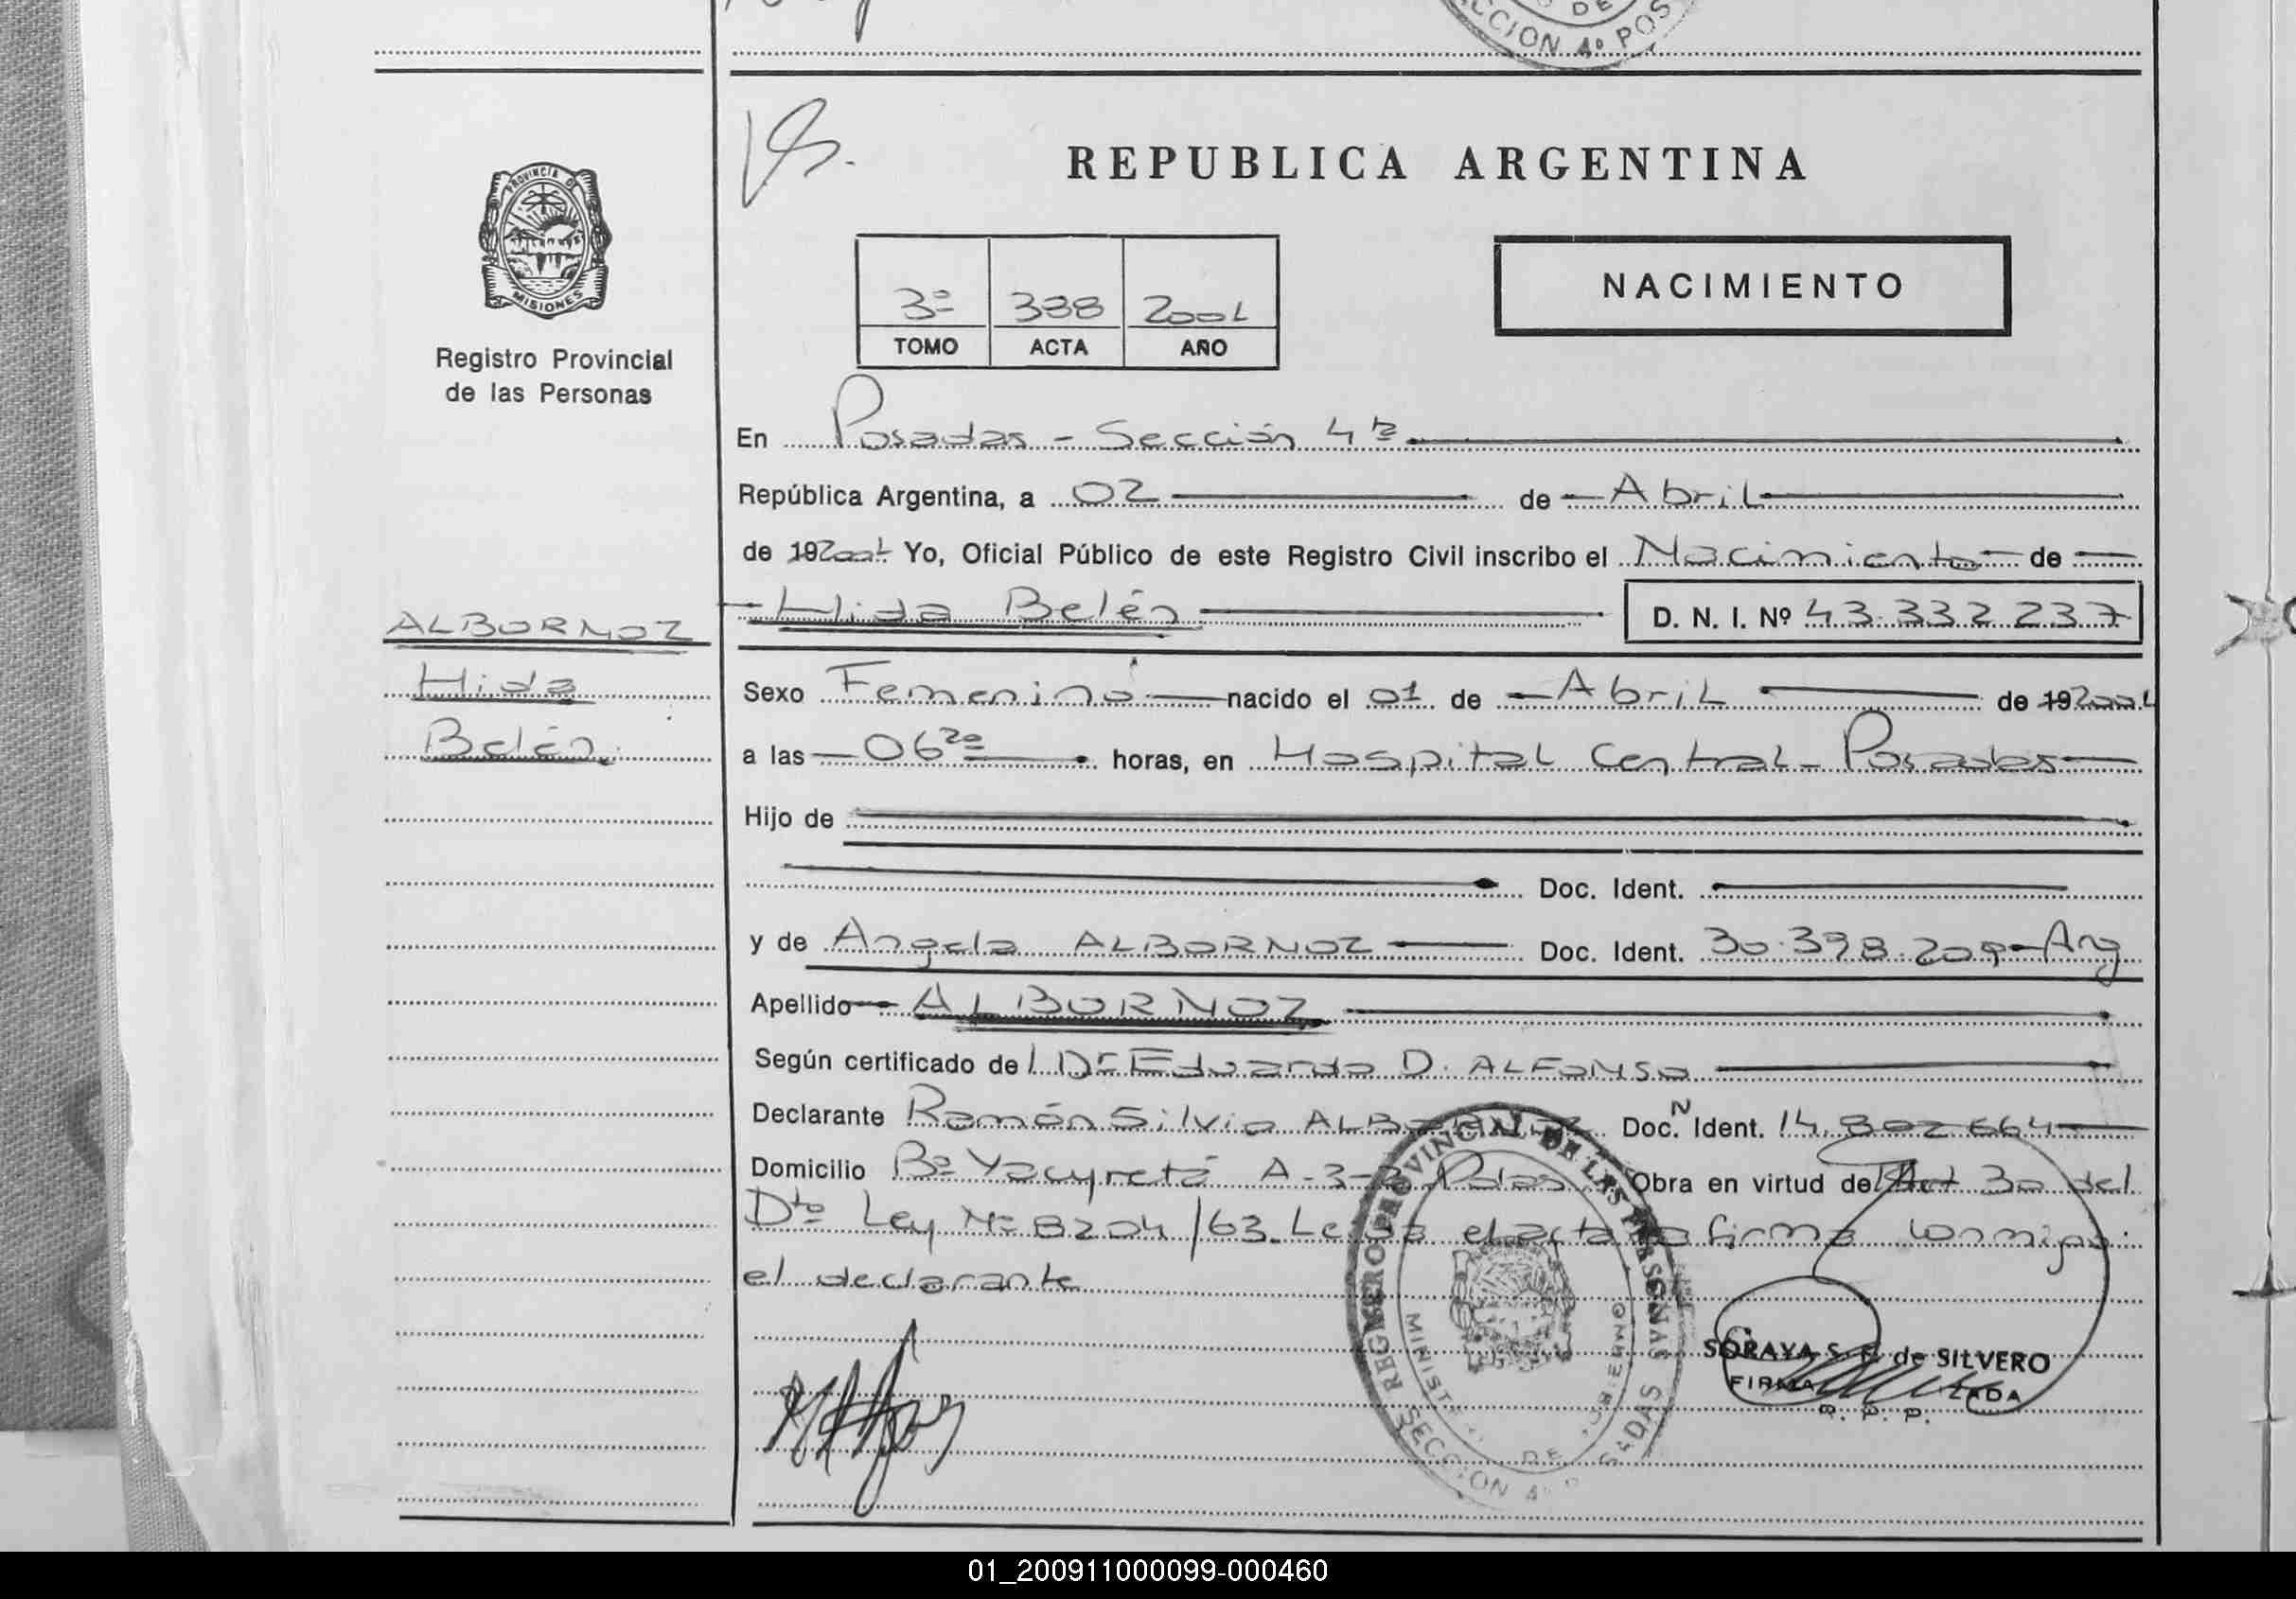 CCION 4º POS
REPUBLICA ARGENTINA
PROVINCIA D
MISIONES
Registro Provincial
de las Personas
3º 338 2001
TOMO ACTA AÑO
NACIMIENTO
En Posadas - Sección 4ta
República Argentina, a 02 de Abril
de 192001 Yo, Oficial Público de este Registro Civil inscribo el Nacimiento de
Hida Belén D. N. I. Nº 43.332.237
ALBORNOZ
Hida
Belén
Sexo Femenino nacido el 01 de Abril de 192001
a las 06 20 horas, en Hospital Central - Posadas
Hijo de
Doc. Ident.
y de Angela ALBORNOZ Doc. Ident. 30.398.209 - Arg
Apellido ALBORNOZ
Según certificado de l Dr Eduardo D. ALFONSO
Declarante Ramón Silvio ALBORNOZ Doc. N Ident. 14.802.664
Domicilio Bº Yacyretá A-3-3 Pdas Obra en virtud del Art 30 del
Dto Ley Nº 8204/63. Leída el acta la firma conmigo:
el declarante
REGISTRO PROVINCIAL DE LAS PERSONAS
MINISTERIO DE GOBIERNO
SECCION 4º POSADAS
SORAYA S. de SILVERO
FIRMA ZADA
R. P. P.
01_200911000099-000460